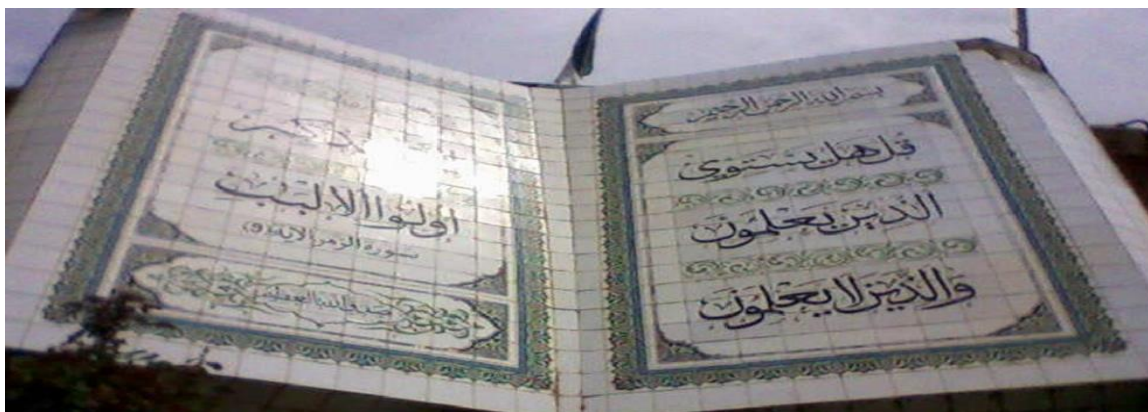 بسم الله الرحمن الرحيم
قل هل يستوى
الذين يعلمون
والذين لا يعلمون
اولوا الالبب
سورة الزمر الاية (9)
صدق الله العظيم